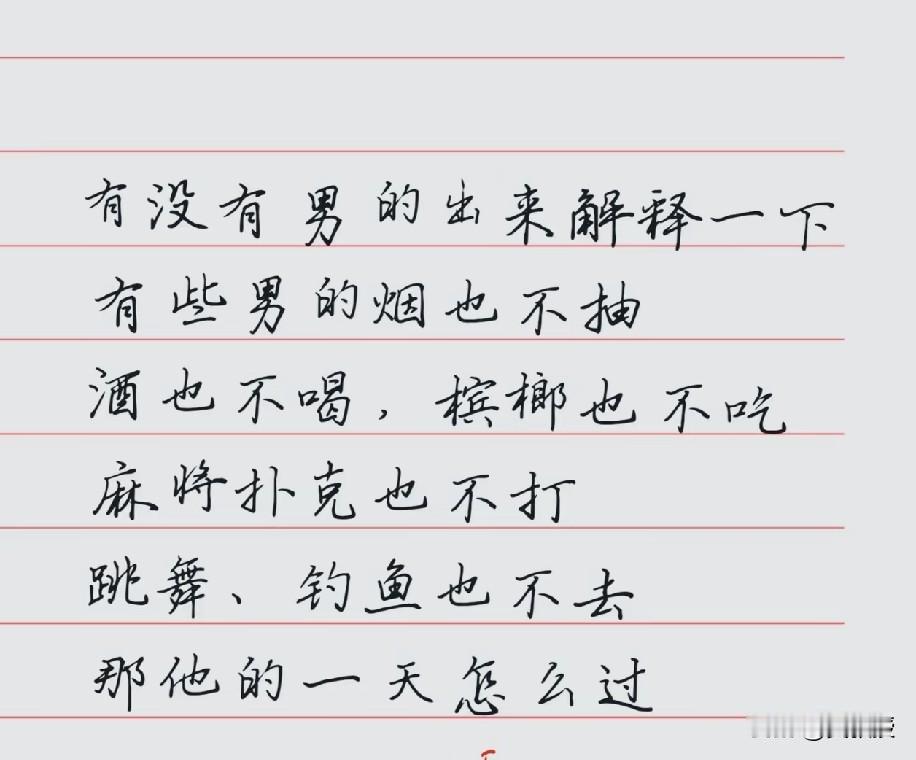 有没有男的出来解释一下
有些男的烟也不抽
酒也不喝，槟榔也不吃
麻将扑克也不打
跳舞、钓鱼也不去
那他的一天怎么过